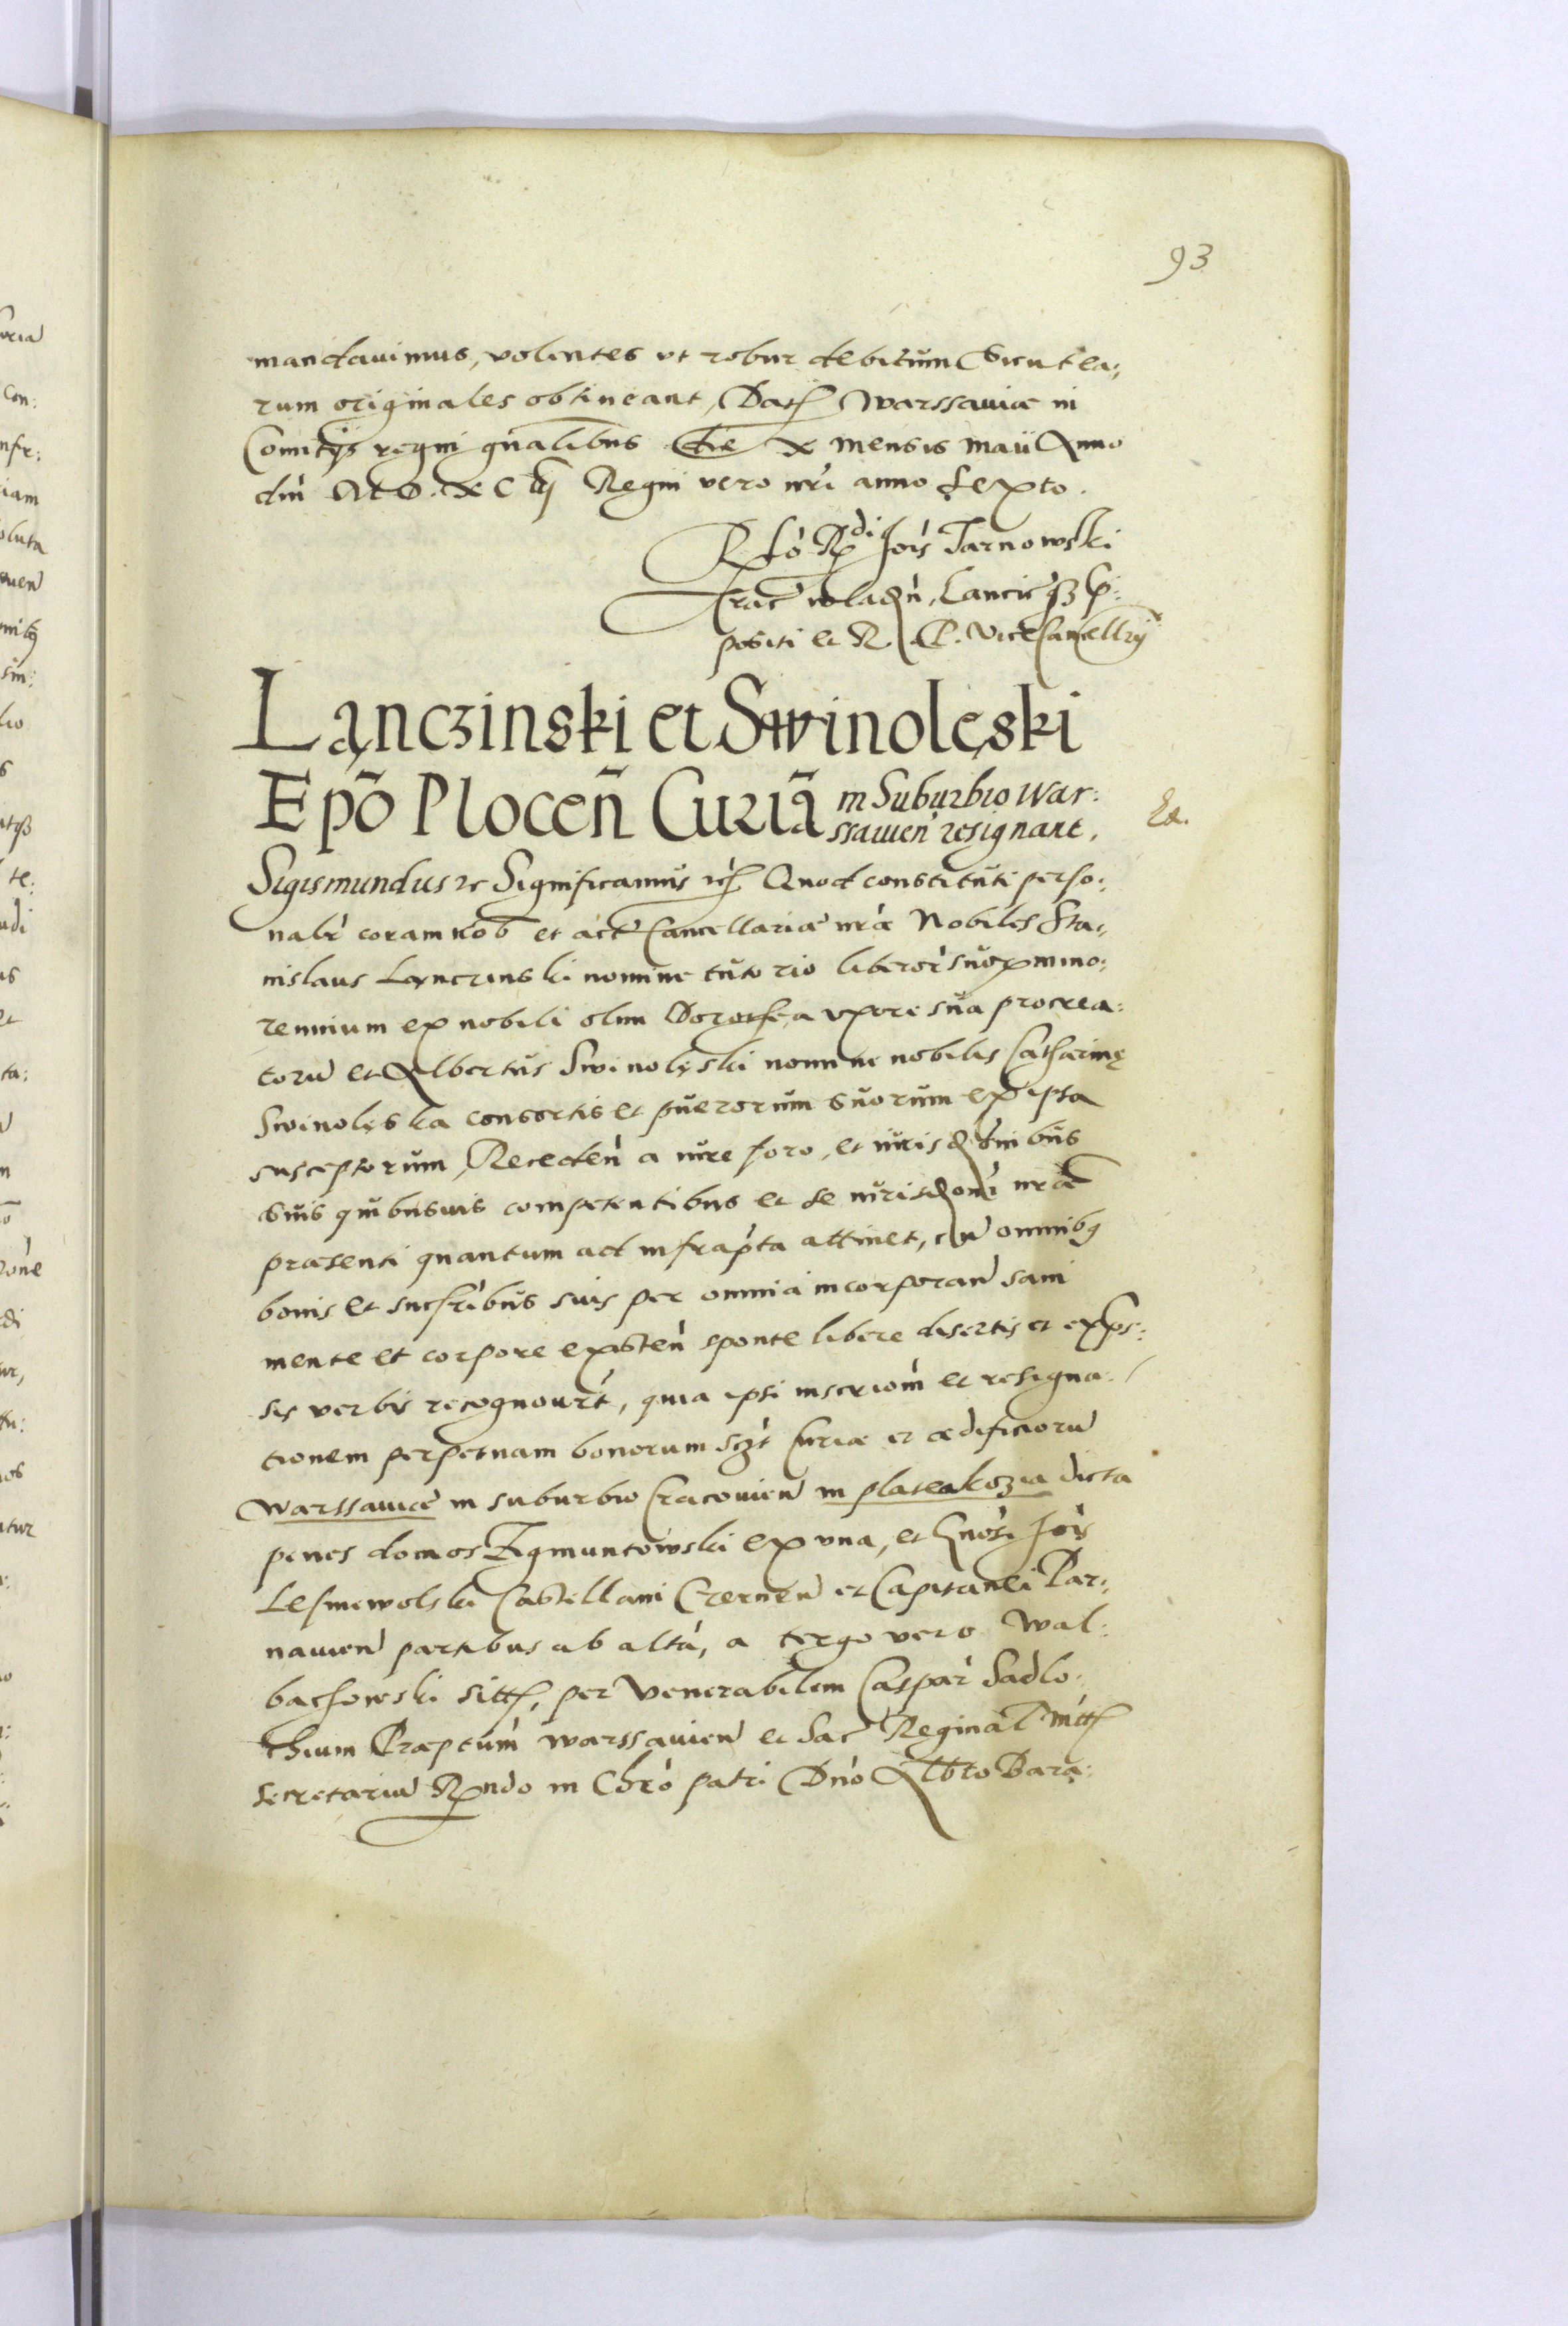 93
mandauimus, volentes vt robur debitum sicut ea:
rum originales obtineant, Dat Warssauiæ in
Comitijs regni gñalibus die X mensis maii Anno
dni M.D.XCiij Regni vero nri anno sexto.
Rlo Rdi Jois Tarnowski
Crac wladn, Lancic
positi et R. P. ViceCancellrij
Lanczinski et Swinolęski
Epõ Plocen̄ Curiā in Suburbio War:
ssauien resignant.
Ea.
Sigismundus etc Significamus Quod constituti perso:
nalr coram nob et act Cancellariæ nræ Nobiles Sta:
nislaus Lęncrinski nomine tutorio liberor suor mino:
rennium ex nobili olim Dorothea vxore sua procrea:
toru et Albertus Swinolęski nomine nobilis Catharinę
Swinolęska consortis et puerorum suorum ex ipsa
susceptorum, Receden a iure foro, et iurisdonibus
suis quibusuis competentibus et se iurisdoni nræ
præsenti quantum ad infrapta attinet, cu omnibq
bonis et sucsribus suis per omnia incorporan sani
mente et corpore existen sponte libere disertis et exps:
sis verbis recognourt, quia ipsi inscriom et resigna:
tionem perpetuam bonorum sczt Curiæ et ædificioru
Warssauiæ in suburbio Cracouien in platea kozia dicta
penes domos Zigmuntowski ex vna, et Gnosi Jois
Lesniewolski Castellani Czernen et Capitanei Par:
nauien partibus ab alta, a tergo vero Wal:
bachowski sitt, per Venerabilem Caspar Sadlo:
chium Præptum warssauien et Sac Reginal Mtt
secretariu Rndo in Chro patri Dno Albto Bara: